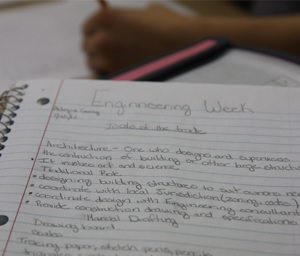 Enginneering Week
Tools of the trade
Architecture - One who designs and supervises
the contruction of building or other large structures
• It involves art and science
Traditional Role
• designing building structure to suit owners needs
• coordinate with local Jurisdiction (zoning, codes)
• coordinate design with Engineering consultants
• Provide construction drawing and specifications
Manual Drafting
Drawing board
Scales
Tracing paper, sketch pens, pencils